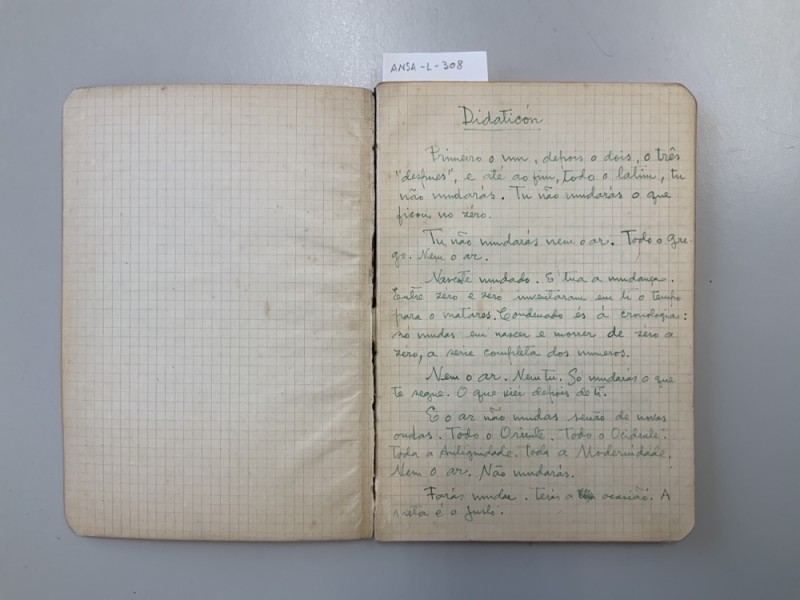 ANSA-L-308
Didaticón
Primeiro o um, depois o dois, o três
"despues", e até ao fim, todo o latim, tu
não mudarás. Tu não mudarás o que
ficou no zéro.
Tu não mudarás nem o ar. Todo o gre-
go. Nem o ar.
Nasceste mudado. É tua a mudança.
Entre zero e zéro inventaram em ti o tempo
para o matares. Condenado és à cronologia:
só mudas em nascer e morrer de zero a
zéro, a serie completa dos numeros.
Nem o ar. Nem tu. Só mudarás o que
te segue. O que vier depois de ti.
E o ar não mudas senão de novas
ondas. Todo o Oriente. Todo o Ocidente.
Toda a Antiguidade. toda a Modernidade.
Nem o ar. Não mudarás.
Farás mudar. Terás a ocasião. A
é o